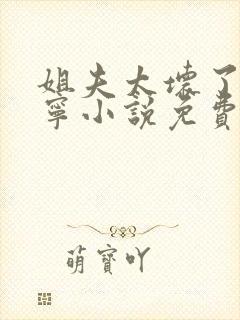 姐夫太坏了
寧小說免費
萌寶吖